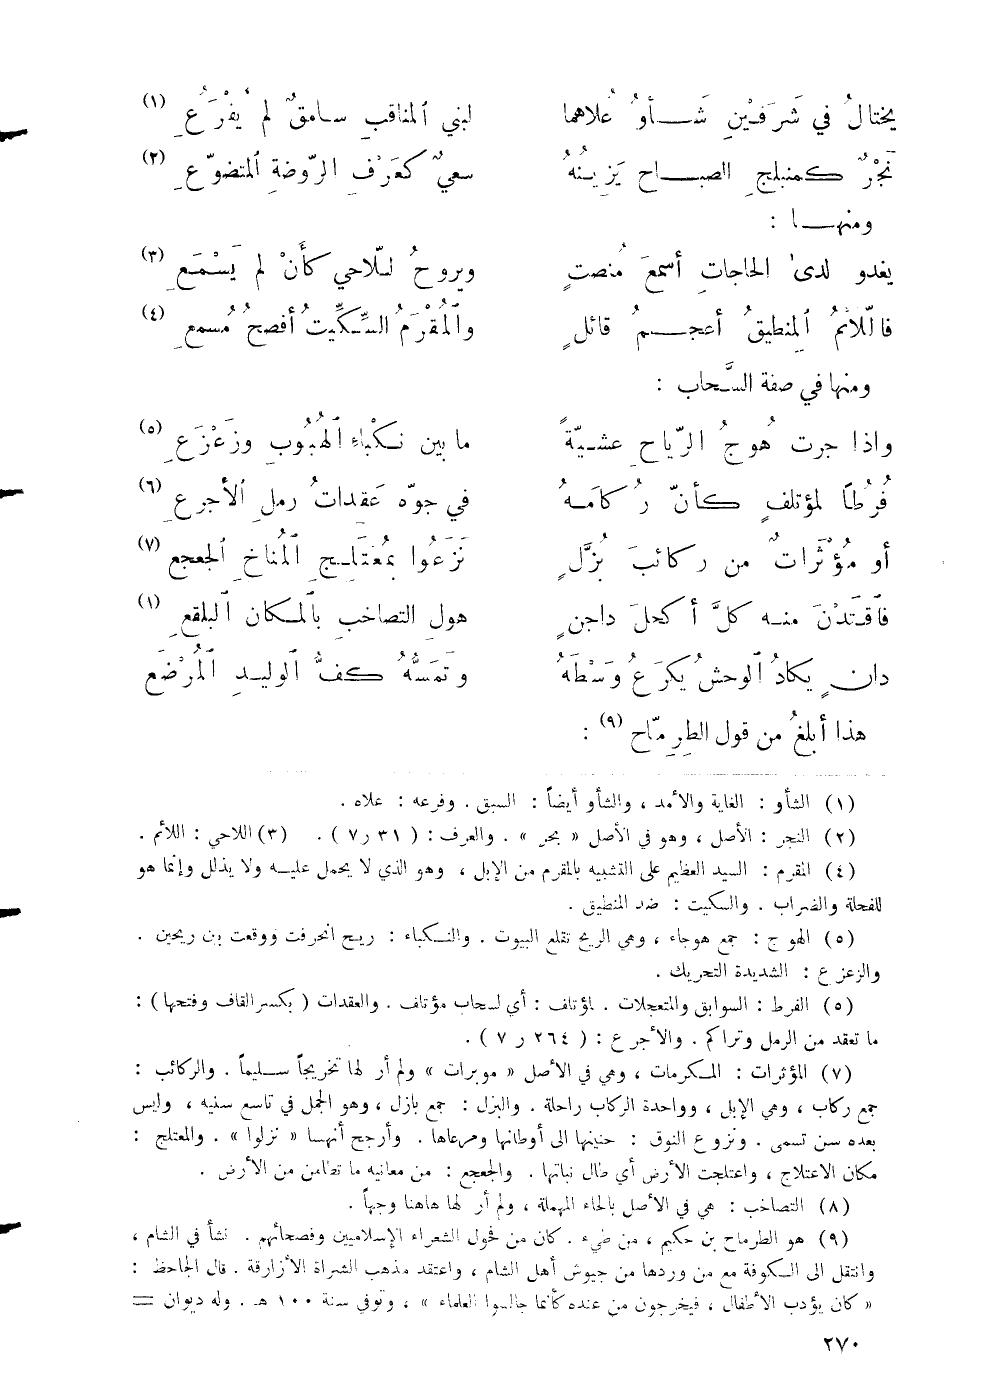 يختالُ في شَرَفَيْنِ شَـأوُ عُلاهما لبني ٱلمناقبِ سـامقٌ لم يُفْرَعِ (١)
نَجْرٌ كمنبلجِ الصبـاح يَزِينُهُ سعيٌ كعَرْفِ الرّوضة ٱلمتضوّعِ (٢)
ومنهـا :
يغدو لدى الحاجاتِ أسمعَ مُنصتٍ ويروحُ للّاحي كأَنْ لم يَسْمَعِ (٣)
فاللّائمُ ٱلمنطيقُ أعجمُ قائلٍ وٱلمُقْرَمُ السِّكِّيتُ أفصحُ مُسمعِ (٤)
ومنها في صفة السَّحاب :
واذا جرت هُوجُ الرّياح عشيّةً ما بين نكْباءِ ٱلهُبُوب وزَعْزَعِ (٥)
فُرُطاً لمؤتلفٍ كأنّ رُكامَهُ في جوّه عَقِداتُ رمل ٱلأجرعِ (٦)
أو مُؤْثَراتٌ من ركائبَ بُزَّلٍ نَزَعُوا بمُعْتَلِجِ ٱلمُناخِ ٱلجعجع (٧)
فاقتَدْنَ منه كلَّ أكحلَ داجنٍ هول التصاخب بٱلمكان ٱلبلقع (١)
دانٍ يكادُ ٱلوحشُ يكرَعُ وَسْطَهُ وتمَسُّهُ كفُّ ٱلوليدِ ٱلمُرْضَعِ
هذا أبلغُ من قول الطرِمّاح (٩) :
(١) الشأو : الغاية والأمد ، والشأو أيضاً : السبق . وفرعه : علاه .
(٢) النجر : الأصل ، وهو في الأصل « بجر » . والعرف : ( ٣١ ر ٧ ) . (٣) اللاحي : اللائم .
(٤) المقرم : السيد العظيم على التشبيه بالمقرم من الإبل ، وهو الذي لا يحمل عليه ولا يذلل وإنما هو
للفحلة والضراب . والسكيت : ضد المنطيق .
(٥) الهوج : جمع هوجاء ، وهي الريح تقلع البيوت . والنكباء : ريح انحرفت ووقعت بين ريحين .
والزعزع : الشديدة التحريك .
(٥) الفرط : السوابق والمتعجلات . لمؤتلف : أي لسحاب مؤتلف . والعقدات ( بكسر القاف وفتحها ) :
ما تعقد من الرمل وتراكم . والأجرع : ( ٢٦٤ ر ٧ ) .
(٧) المؤثرات : المكرمات ، وهي في الأصل « موبرات » ولم أر لها تخريجاً سليماً . والركائب :
جمع ركاب ، وهي الإبل ، وواحدة الركاب راحلة . والبزل : جمع بازل ، وهو الجمل في تاسع سنيه ، وليس
بعده سن تسمى . ونزوع النوق : حنينها الى أوطانها ومرعاها . وأرجح أنها « نزلوا » . والمعتلج :
مكان الاعتلاج ، واعتلجت الأرض أي طال نباتها . والجعجع : من معانيه ما تطامن من الأرض .
(٨) التصاخب : هي في الأصل بالحاء المهملة ، ولم أر لها هاهنا وجهاً .
(٩) هو الطرماح بن حكيم ، من طيء . كان من فحول الشعراء الإسلاميين وفصحائهم . نشأ في الشام ،
وانتقل الى الكوفة مع من وردها من جيوش أهل الشام ، واعتقد مذهب الشراة الأزارقة . قال الجاحظ :
« كان يؤدب الأطفال ، فيخرجون من عنده كأنما جالسوا العلماء » ، وتوفي سنة ١٠٠ هـ . وله ديوان =
٢٧٠